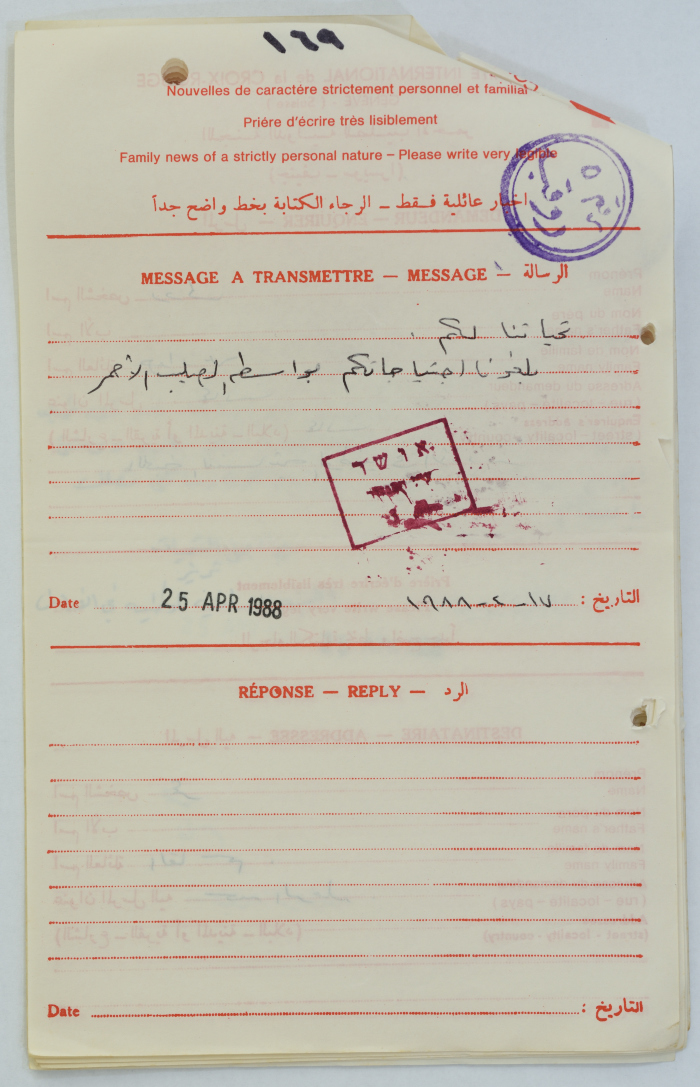 ١٦٩
Nouvelles de caractére strictement personnel et familial
Prière d'écrire très lisiblement
Family news of a strictly personal nature – Please write very legible
اخبار عائلية فقط – الرجاء الكتابة بخط واضح جداً
MESSAGE A TRANSMETTRE – MESSAGE – الرسالة
تحياتنا لكم .
بلغونا احتياجاتكم بواسطة الصليب الأحمر
Date 25 APR 1988 ١٧-٢-١٩٨٨ التاريخ :
RÉPONSE – REPLY – الرد
Date التاريخ :